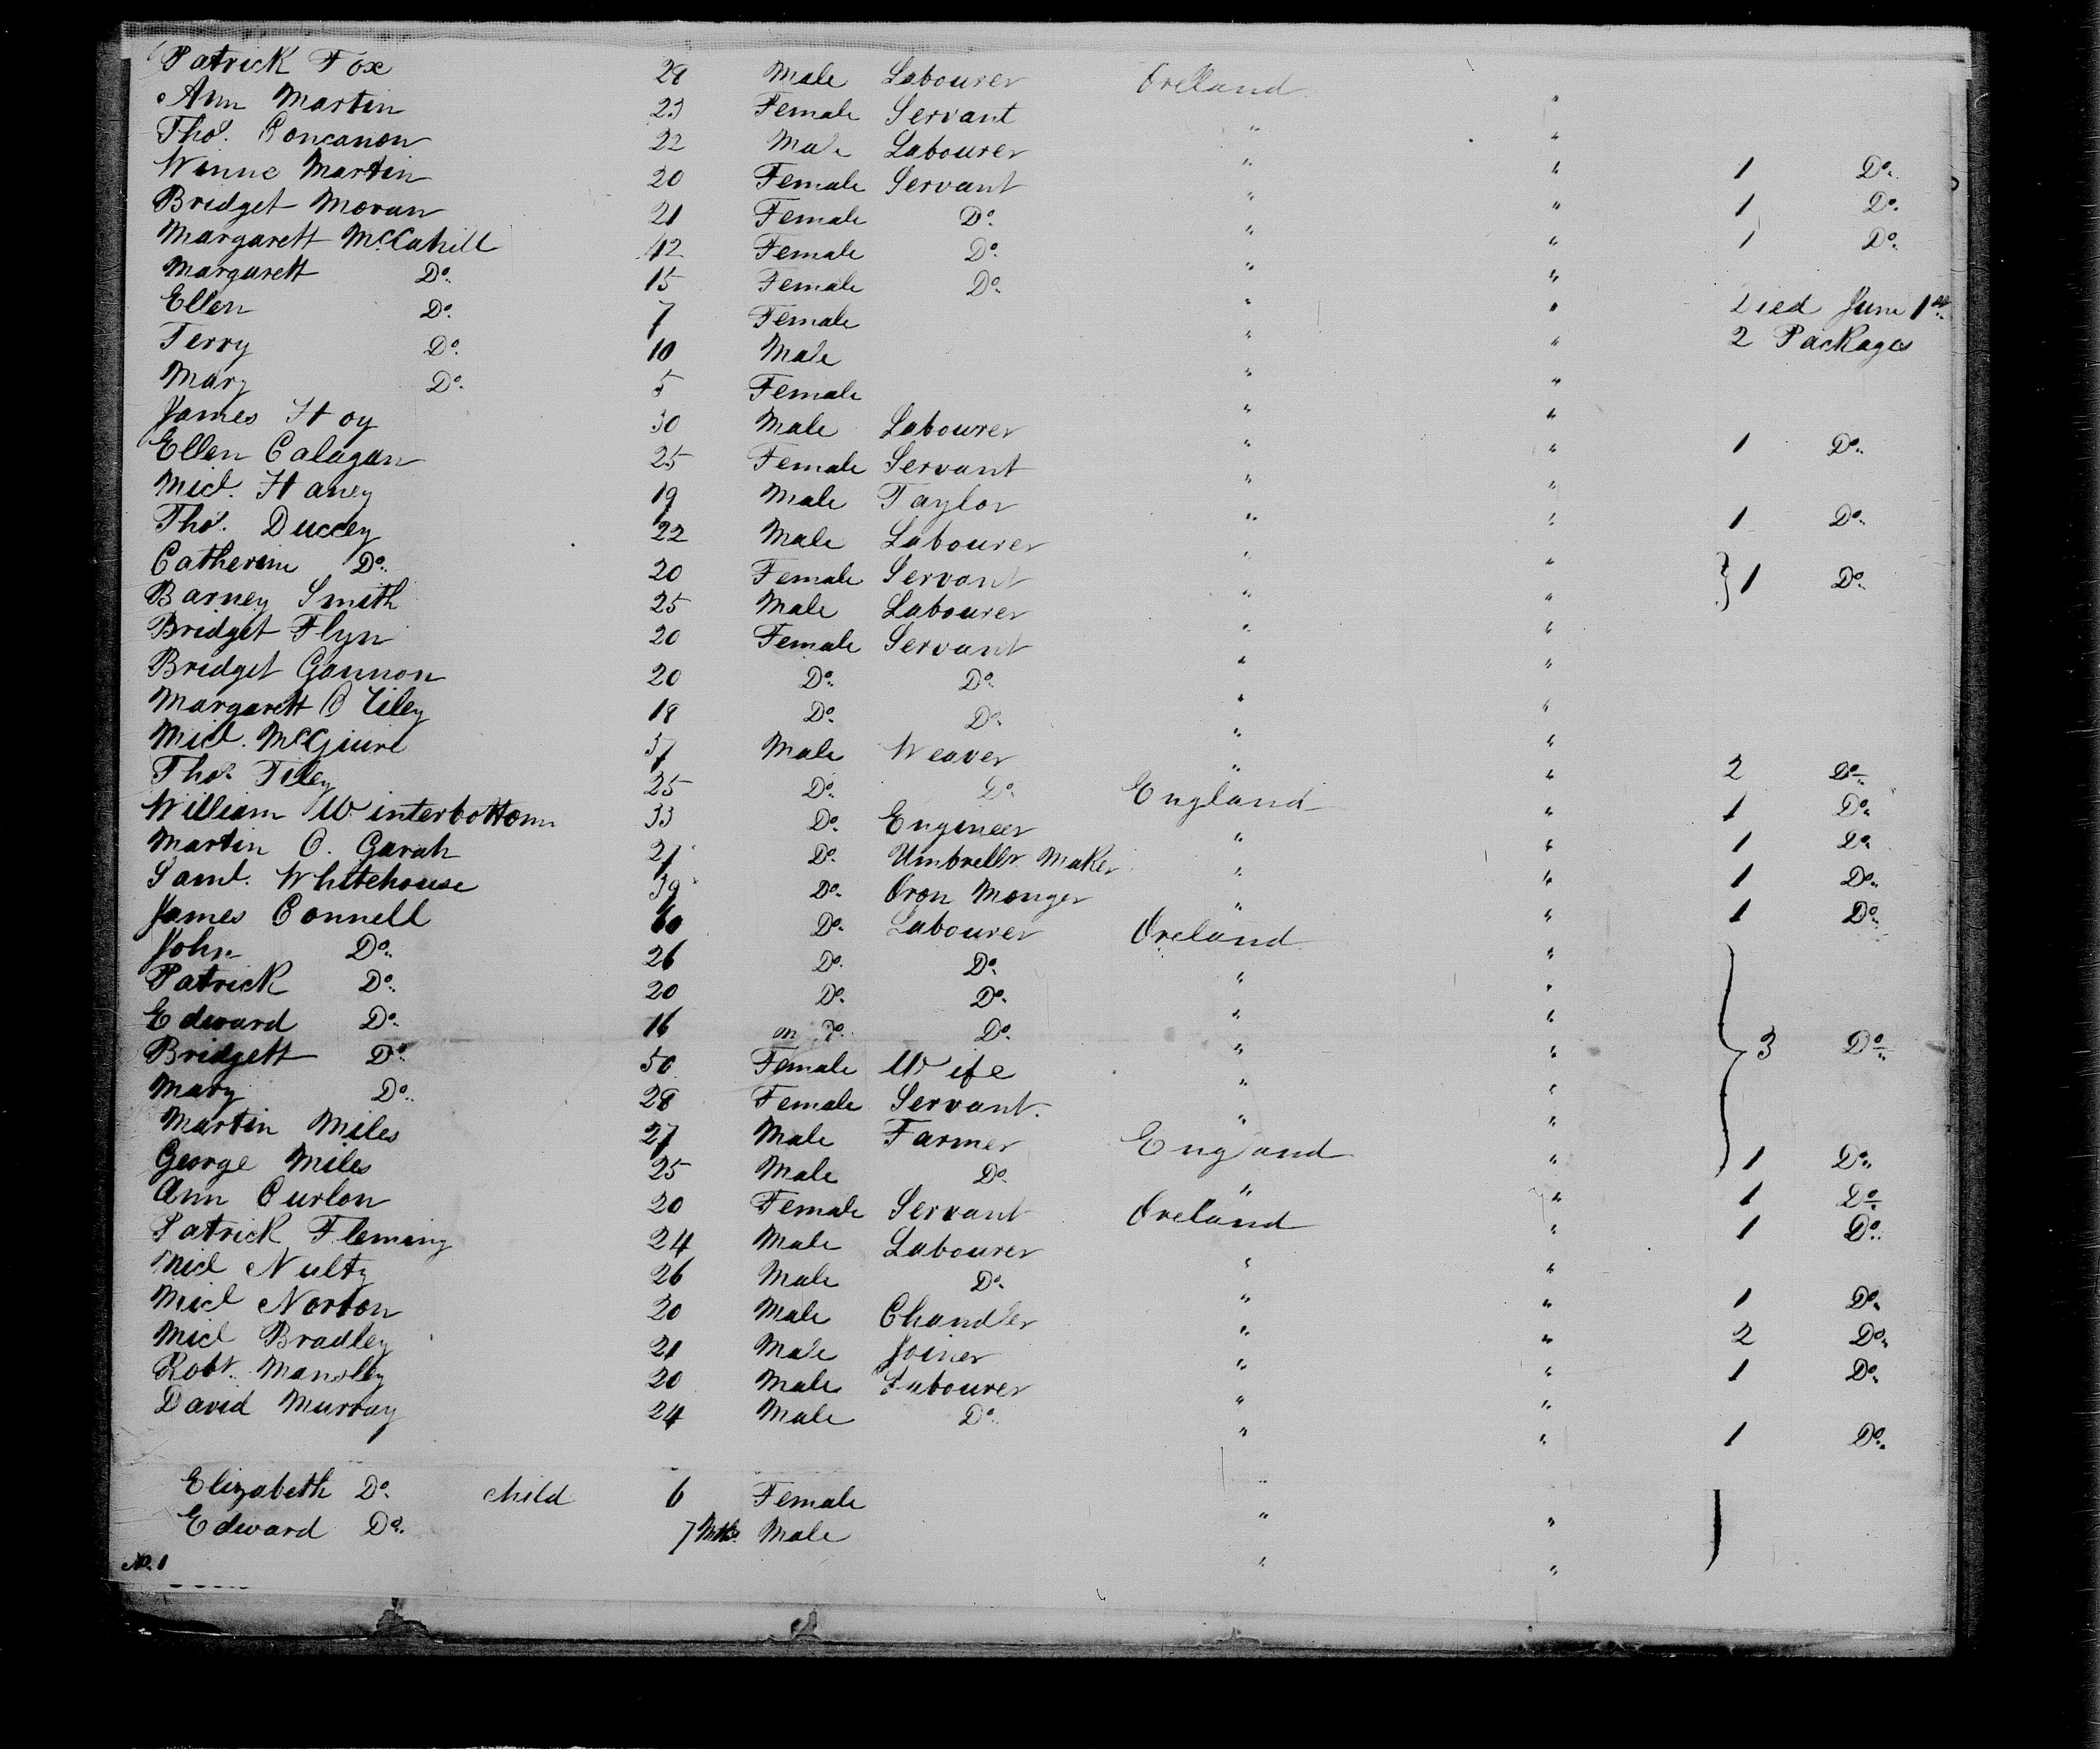 Patrick Fox 28 Male Labourer Ireland
Ann Martin 23 Female Servant " "
Thos. Concanon 22 Male Labourer " "
Winne Martin 20 Female Servant " " 1 Do.
Bridget Moran 21 Female Do. " " 1 Do.
Margarett McCahill 42 Female Do. " " 1 Do.
Margarett Do. 15 Female Do. " "
Ellen Do. 7 Female " " Died June 1st
Terry Do. 10 Male " " 2 Packages
Mary Do. 5 Female " "
James Hoy 30 Male Labourer " "
Ellen Calagan 25 Female Servant " " 1 Do.
Micl. Haney 19 Male Taylor " "
Thos. Duccey 22 Male Labourer " " 1 Do.
Catherine Do. 20 Female Servant " " } 1 Do.
Barney Smith 25 Male Labourer " "
Bridget Flyn 20 Female Servant " "
Bridget Gannon 20 Do. Do. " "
Margarett 18 Do. Do. " "
Micl. McGiure 37 Male Weaver " "
Thos. Tiley 25 Do. Do. England " 2 Do.
William Winterbottom 33 Do. Engineer " " 1 Do.
Martin O. Garah 21 Do. Umbrella Maker " " 1 Do.
Saml. Whitehouse 39 Do. Iron Monger " " 1 Do.
James Connell 60 Do. Labourer Ireland " 1 Do.
John Do. 26 Do. Do. " "
Patrick Do. 20 Do. Do. " "
Edward Do. 16 Do. Do. " "
Bridgett Do. 50 Female Wife " " } 3 Do.
Mary Do. 28 Female Servant. " "
Martin Miles 27 Male Farmer England "
George Miles 25 Male Do. " " 1 Do.
Ann Curlon 20 Female Servant Ireland " 1 Do.
Patrick Fleming 24 Male Labourer " " 1 Do.
Micl Nulty 26 Male Do. " "
Micl Norton 20 Male Chandler " " 1 Do.
Micl Bradley 21 Male Joiner " " 2 Do.
Robt. 20 Male Labourer " " 1 Do.
David Murray 24 Male Do. " " 1 Do.
Elizabeth Do. child 6 Female " "
Edward Do. 7 Mths. Male " "
No. 1